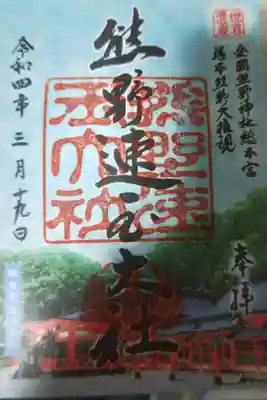 世界
遺産
全國熊野神社総本宮
根本熊野大権現
奉拝
熊野速玉大社
熊野速
玉大社
令和四年三月十九日